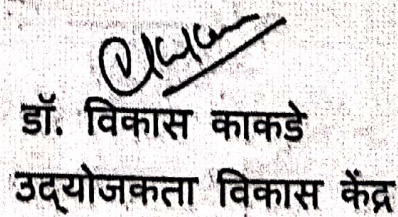 डॉ. विकास काकडे
उद्‌योजकता विकास केंद्र